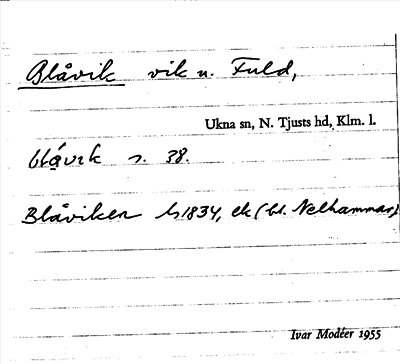 Blåvik vik n. Fuld,
Ukna sn, N. Tjusts hd, Klm. l.
s. 38.
Blåviken ek (bl. Nelhammar)
Ivar Modéer 1955